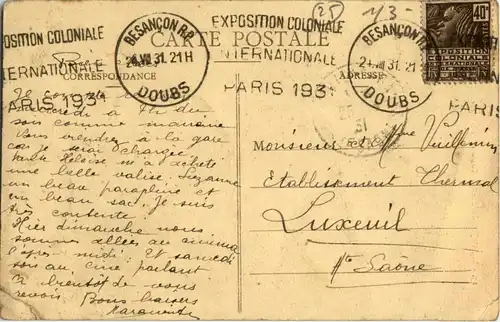 EXPOSITION COLONIALE
INTERNATIONALE
PARIS 1931
POSITION COLONIALE
INTERNATIONALE
PARIS 1931
BESANÇON R.P.
24 VII 31. 21H
DOUBS
BESANÇON R.P.
24 VII 31. 21
DOUBS
PARIS
CARTE POSTALE
CORRESPONDANCE
ADRESSE
40c
13-
Je
mercredi à 7h du
soir comme maman
Vous viendrez à la gare
car je serai chargée.
Tante Héloïse m'a acheté
une belle valise. Suzanne
un beau parapluie et
un beau sac. Je suis
très contente.
Hier dimanche nous
sommes allées au cinéma
l'après-midi. Et samedi
soir au ciné parlant
à bientôt de vous
revoir. Bons baisers
Marguerite
Monsieur et Mme Vuillemin
Etablissement Thermal
Luxeuil
Hte Saône